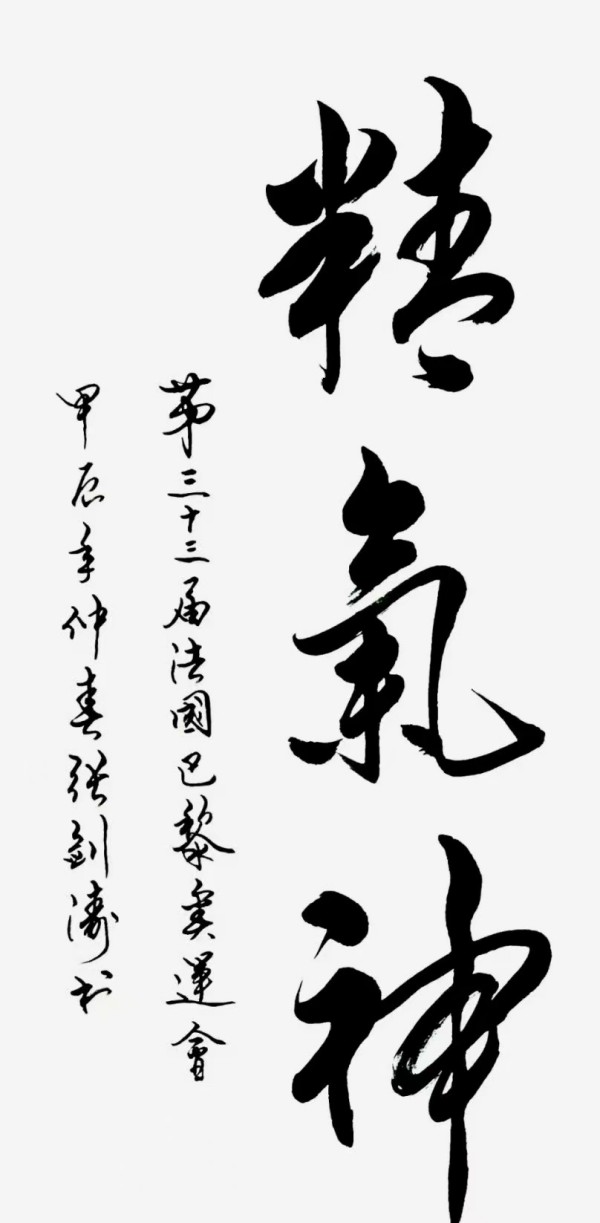 精氣神
第三十三届法國巴黎奥運會
甲辰年仲春張劍濤书